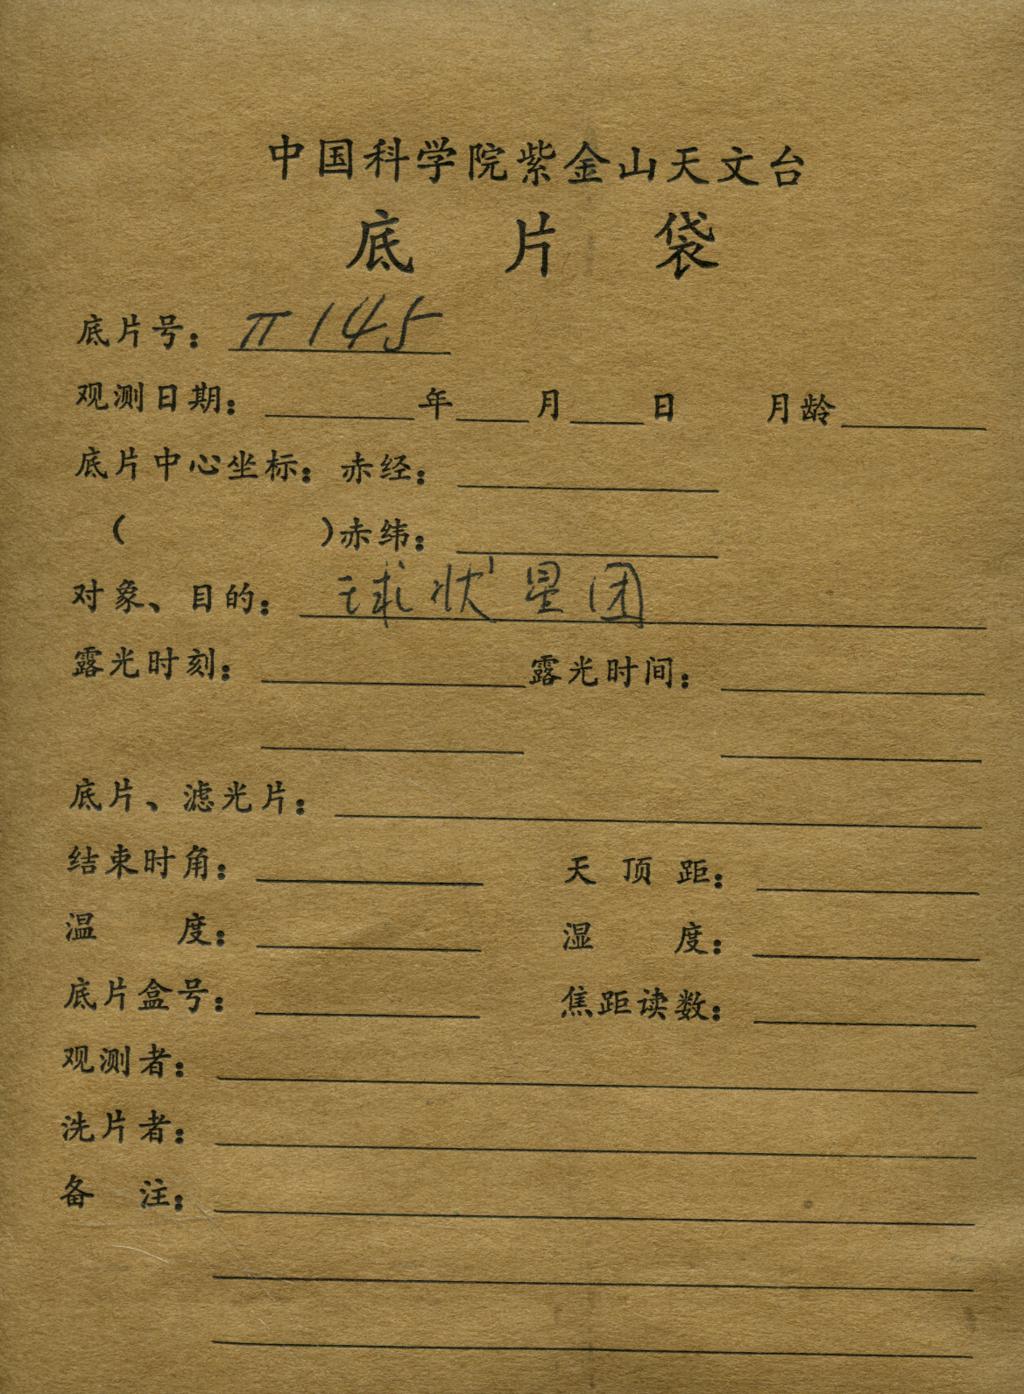 中国科学院紫金山天文台
底片袋
底片号：π145
观测日期：年月日 月龄
底片中心坐标：赤经：
（ ）赤纬：
对象、目的：球状星团
露光时刻： 露光时间：
底片、滤光片：
结束时角： 天顶距：
温度： 湿度：
底片盒号： 焦距读数：
观测者：
洗片者：
备注：